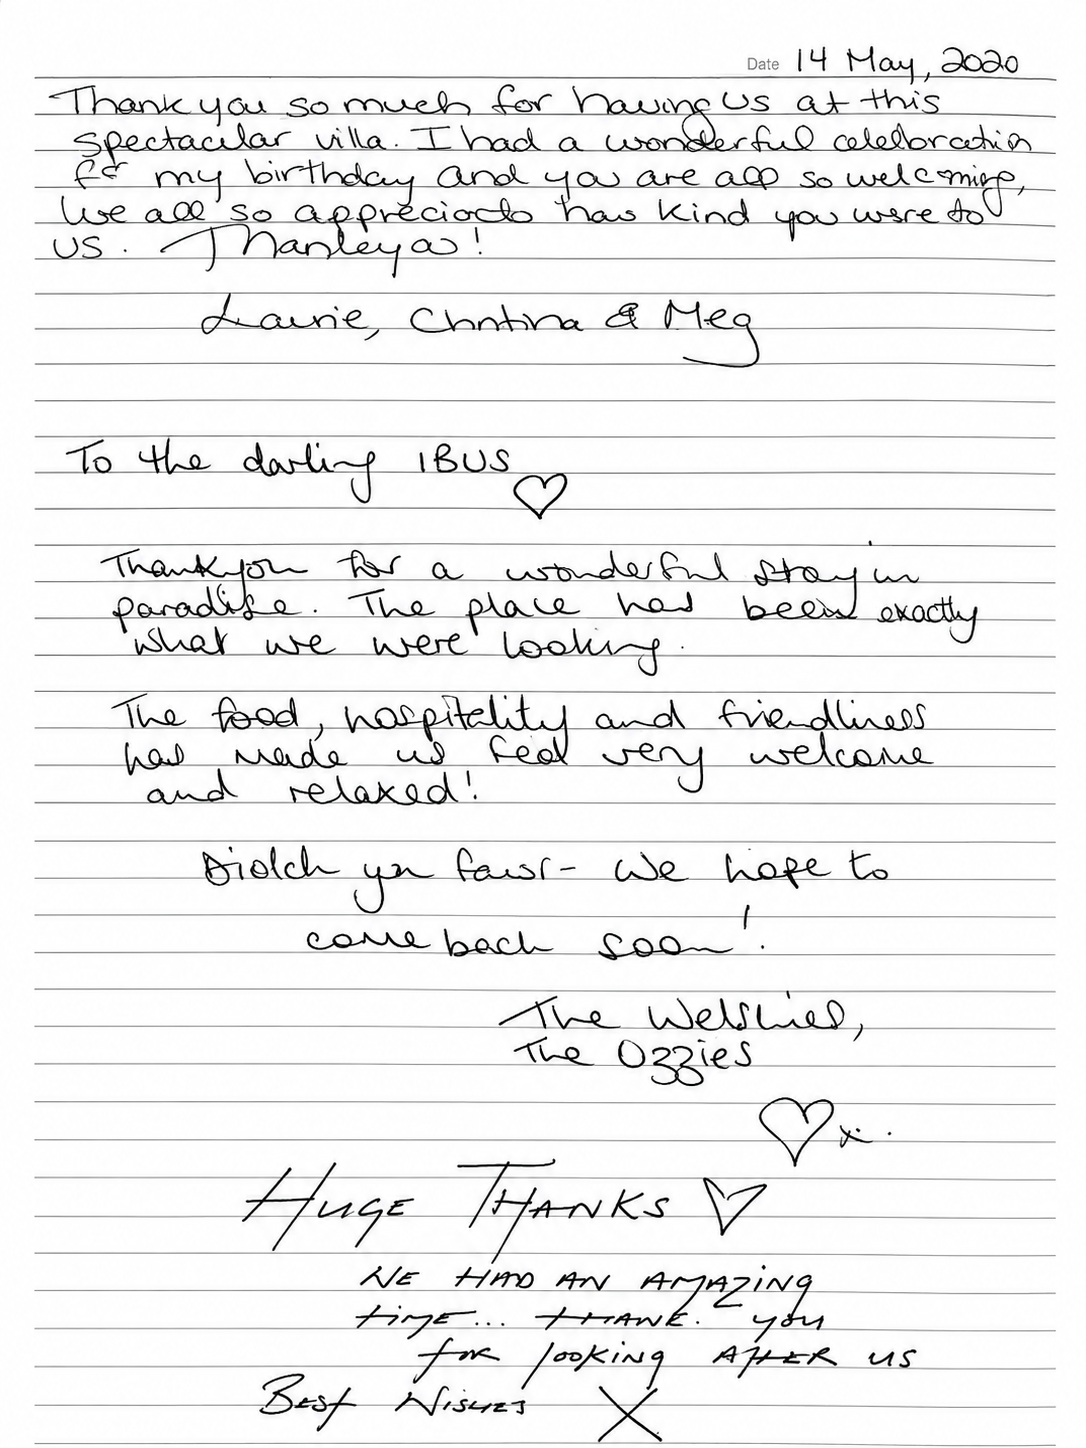 Date 14 May, 2020
Thank you so much for having us at this
spectacular villa. I had a wonderful celebration
for my birthday and you are all so welcoming,
We all so appreciate how kind you were to
us. Thank you!
Laurie, Christina & Meg
To the darling IBUS ♡
Thankyou for a wonderful stay in
paradise. The place has been exactly
what we were looking.
The food, hospitality and friendliness
has made us feel very welcome
and relaxed!
Diolch yn fawr - We hope to
come back soon!
The Welshies,
The Ozzies
♡ x.
HUGE THANKS ♡
WE HAD AN AMAZING
TIME... THANK. you
for looking AFTER US
BEST WISHES X